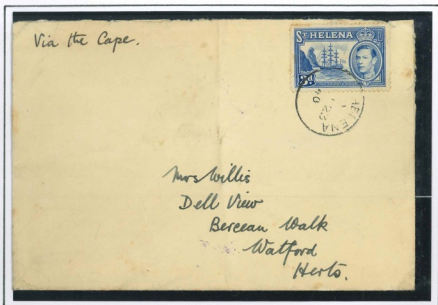 Via the Cape.
ST HELENA
3d
HELENA
Mrs Willis
Dell View
Berecan Walk
Watford
Herts.